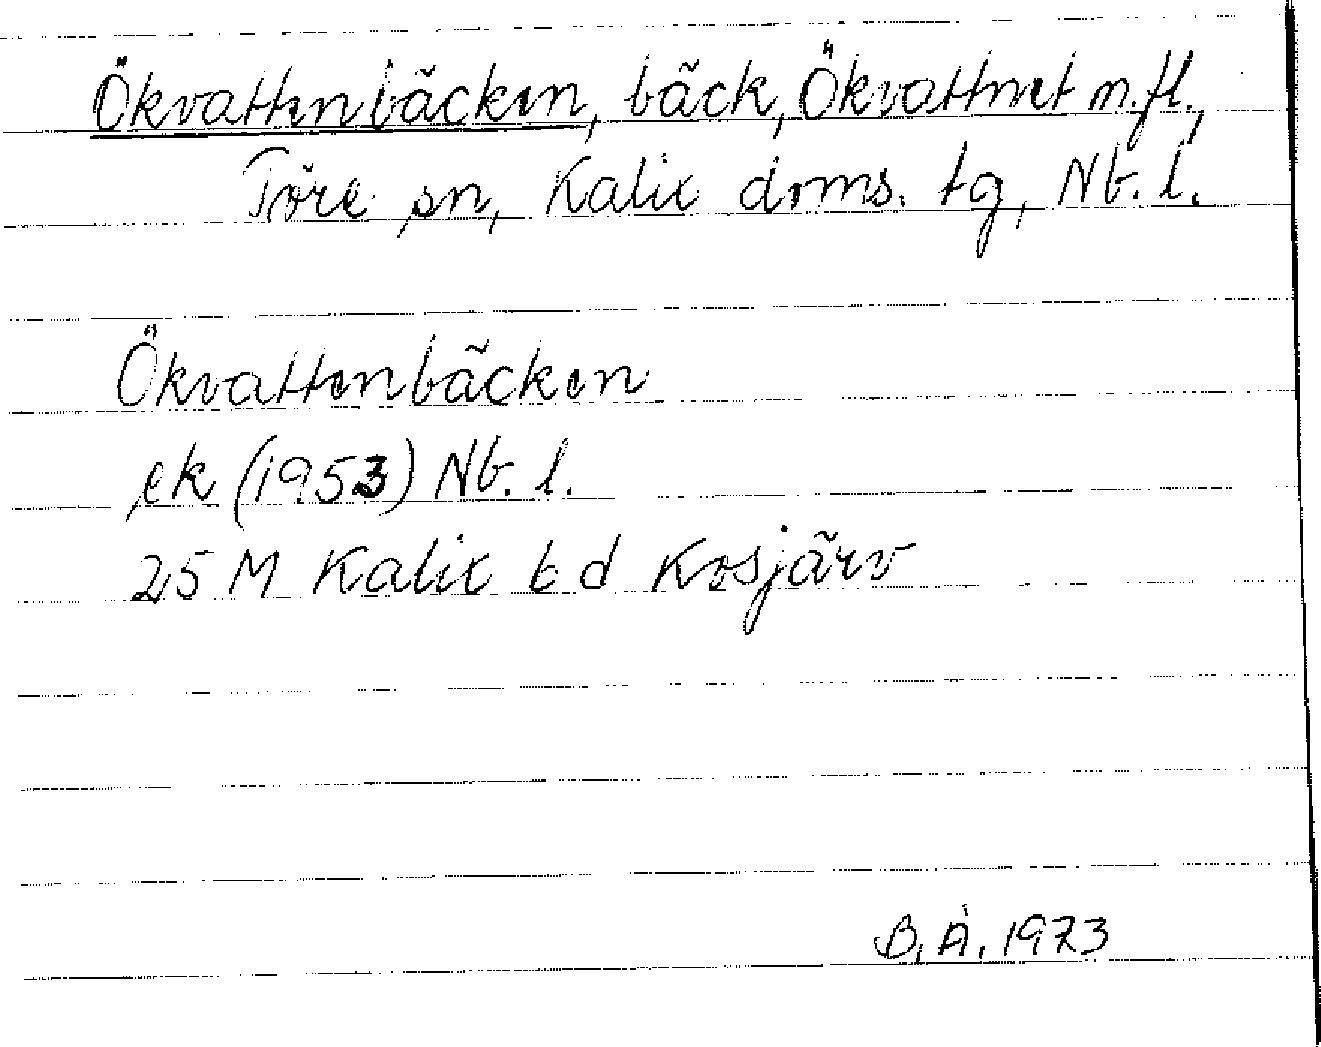 Ökvattenbäcken, bäck, Ökvattnet m.fl.,
Töre sn, Kalix doms. tg, Nb. l.
Ökvattenbäcken
ek (1953) Nb. l.
25 M Kalix t d Kosjärv
B. Å. 1973